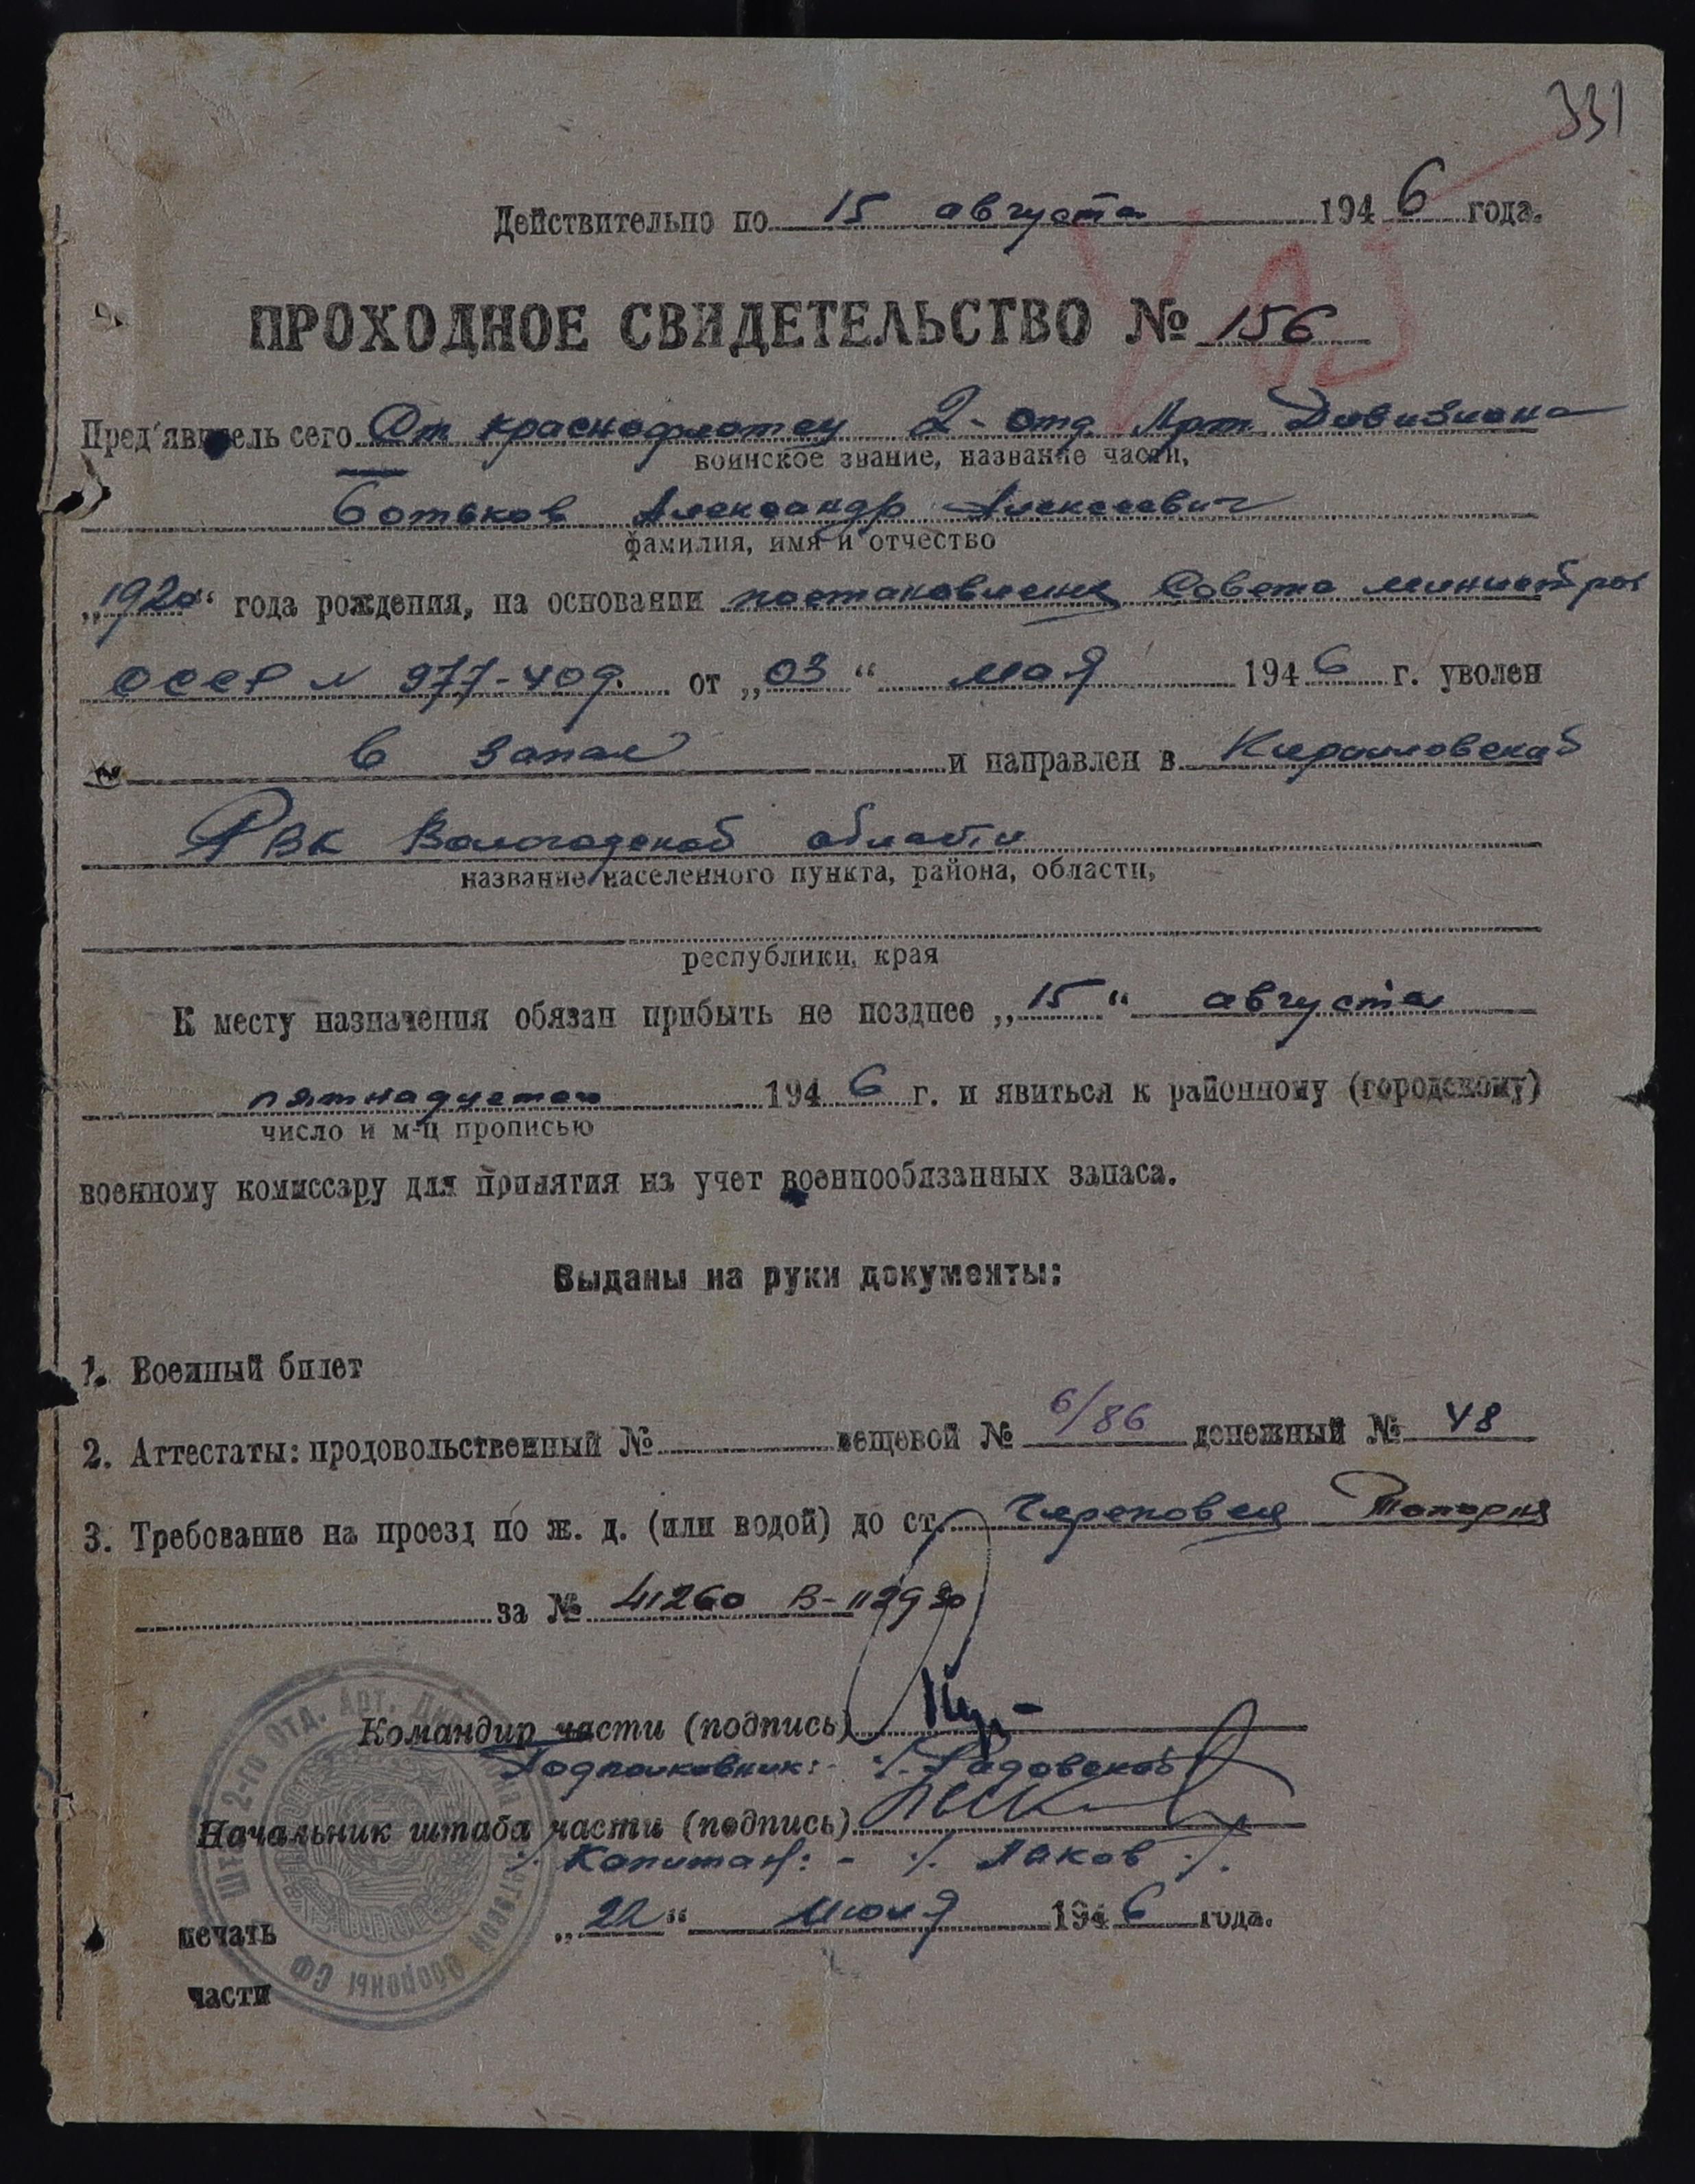 331
Действительно по 15 августа 1946 года.
ПРОХОДНОЕ СВИДЕТЕЛЬСТВО № 156
Пред'явитель сего Ст краснофлотец 2-отд. Арт. Дивизиона
воинское звание, название части,
Ботьков Александр Алексеевич
фамилия, имя и отчество
„1920“ года рождения, на основании постановления Совета министров
СССР N 977-409. от „03“ мая 1946 г. уволен
в запас и направлен в Кирилловский
РВК Вологодской области
название населенного пункта, района, области,
республики, края
К месту назначения обязан прибыть не позднее „15“ августа
пятнадцатого 1946 г. и явиться к районному (городскому)
число и м-ц прописью
военному комиссару для принятия на учет военнообязанных запаса.
Выданы на руки документы:
1. Военный билет
2. Аттестаты: продовольственный № вещевой № 6/86 денежный № 48
3. Требование на проезд по ж. д. (или водой) до ст. Череповец Топорня
за № 41260 В-112930
Командир части (подпись)
Подполковник: ·/. Радовский
Начальник штаба части (подпись)
·/. Капитан: - ·/. Лаков ·/.
„22“ июля 1946 года.
печать
части
Штаб 2-го Отд. Арт. Дивизиона Береговой Обороны СФ